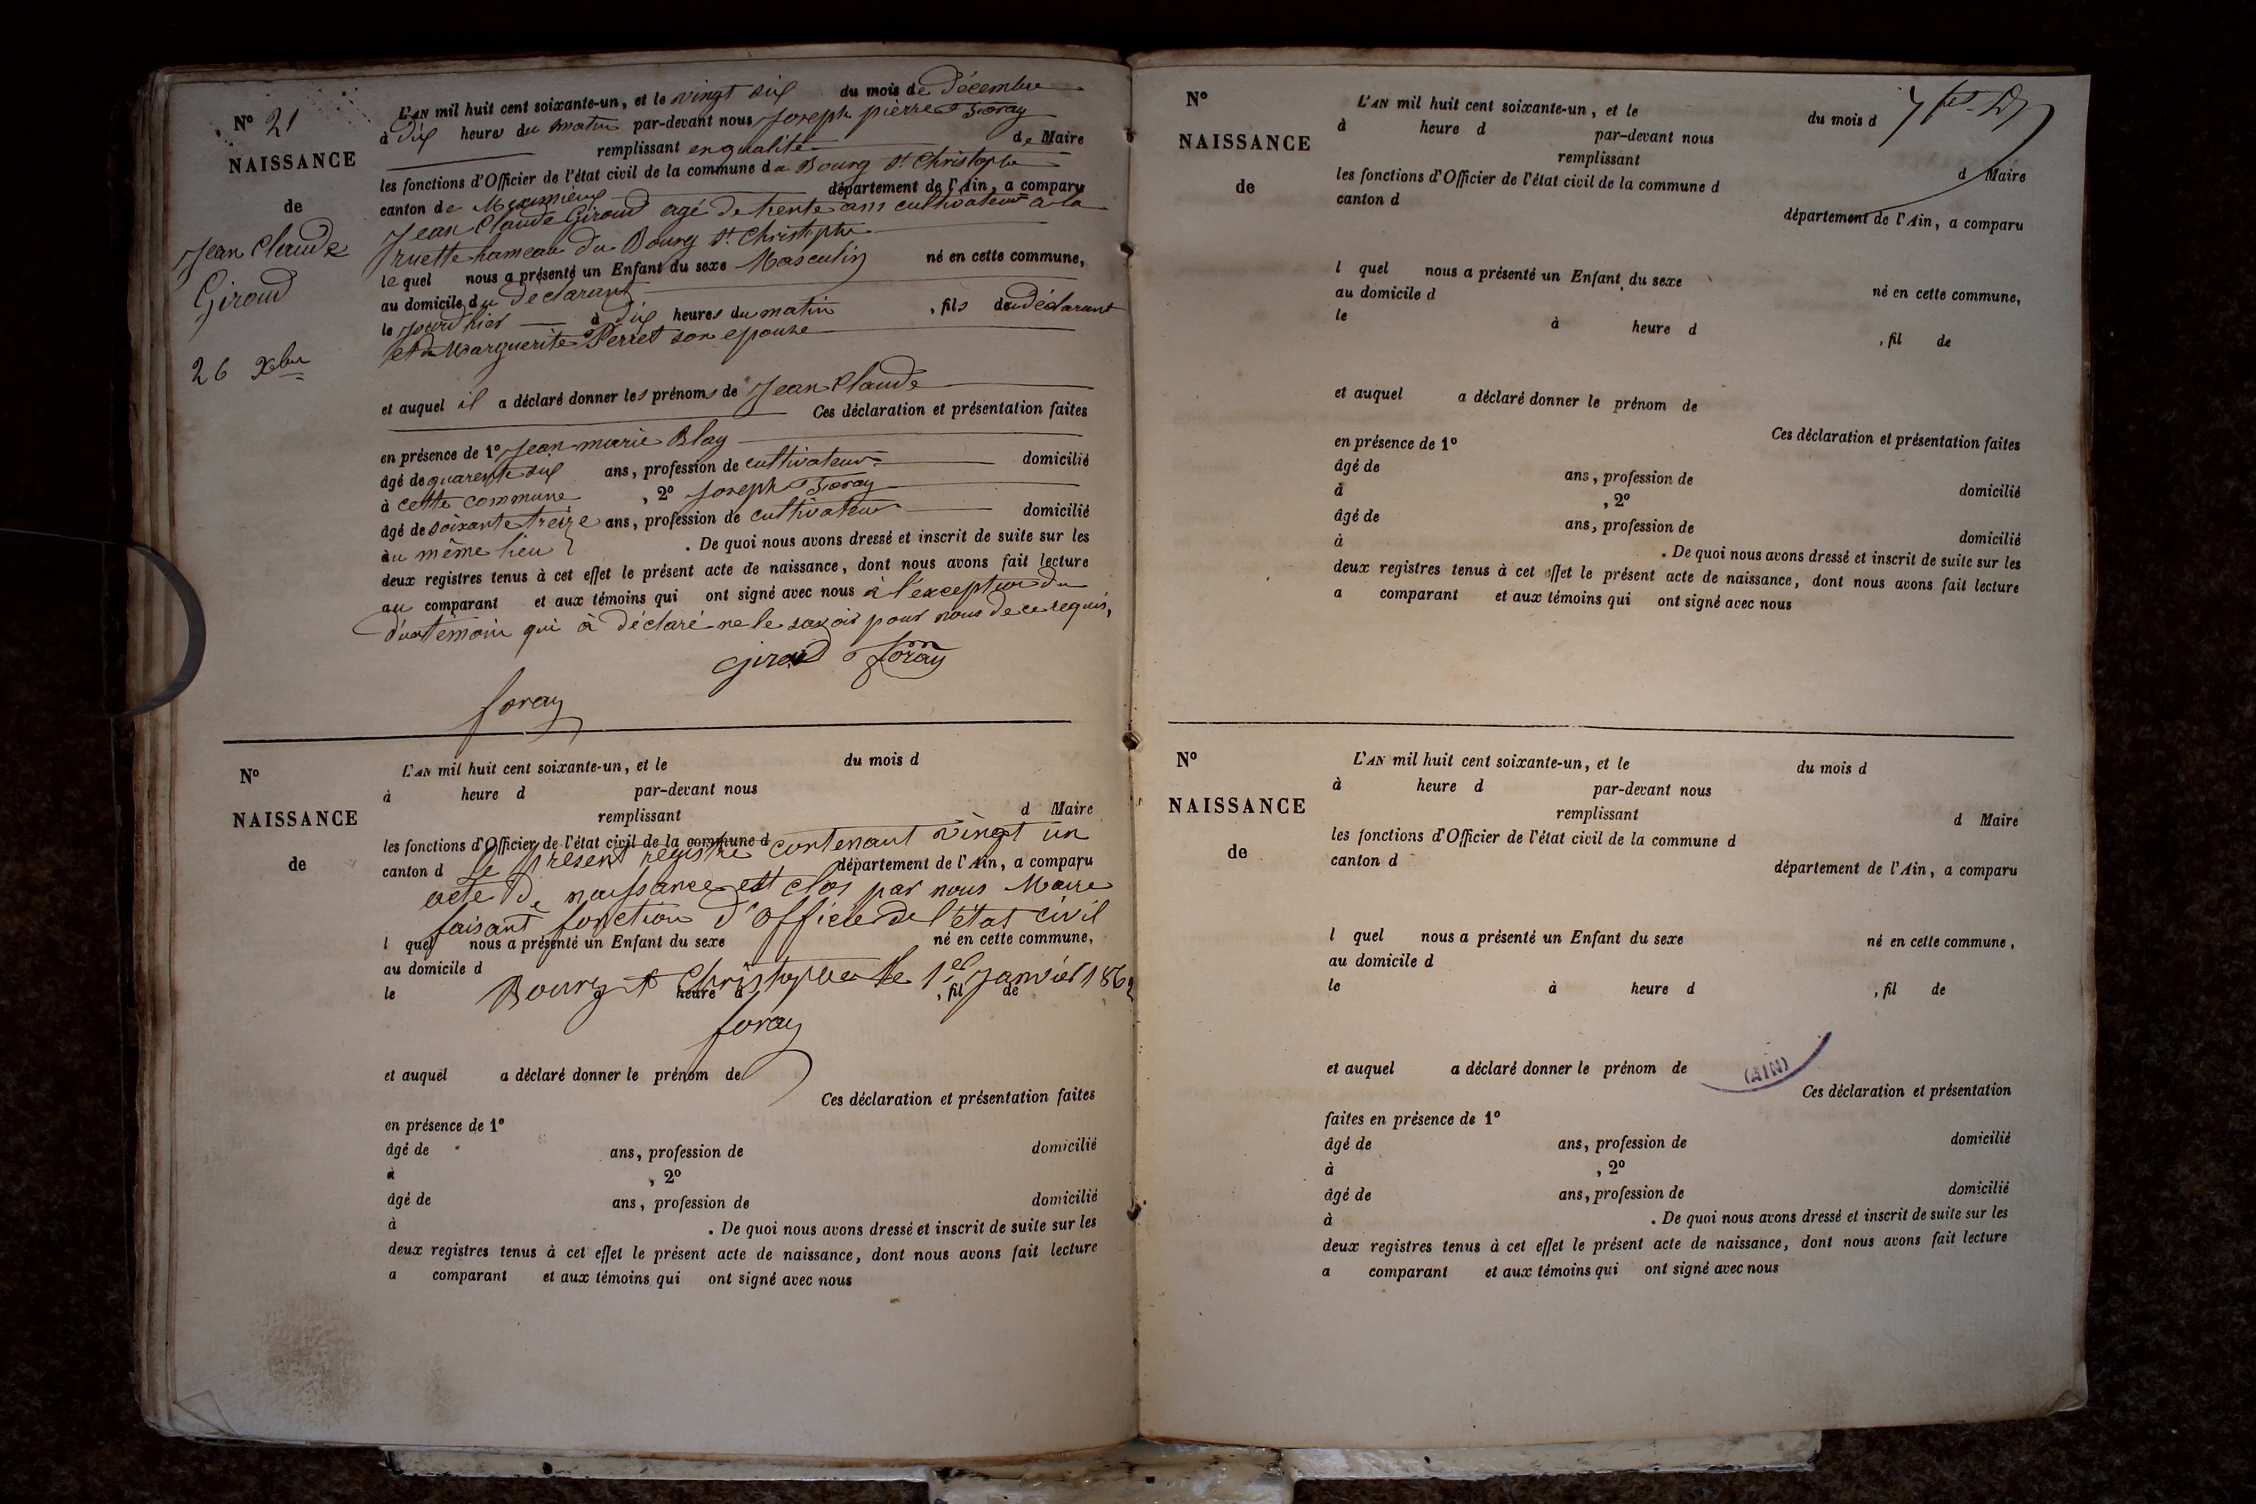 N° 21
NAISSANCE
de
Jean Claude
Giroud
26 Xbre
L'AN mil huit cent soixante-un, et le vingt six du mois de Décembre
à dix heures du matin par-devant nous Joseph pierre Foray
remplissant en qualité de Maire
les fonctions d'Officier de l'état civil de la commune de Bourg St Christophe
canton de Meximieux département de l'Ain, a comparu
Jean Claude Giroud agé de trente ans cultivateur à la
ruette hameau du Bourg St Christophe
le quel nous a présenté un Enfant du sexe Masculin né en cette commune,
au domicile du declarant
le jourd'hier à dix heures du matin, fils du déclarant
et de Marguerite Perret son epouse
et auquel il a déclaré donner les prénoms de Jean Claude
Ces déclaration et présentation faites
en présence de 1° Jean marie Blay
âgé de quarente six ans, profession de cultivateur domicilié
à cette commune, 2° Joseph Foray
âgé de soixante treize ans, profession de cultivateur domicilié
au même lieu. De quoi nous avons dressé et inscrit de suite sur les
deux registres tenus à cet effet le présent acte de naissance, dont nous avons fait lecture
au comparant et aux témoins qui ont signé avec nous à l'exception du
témoin qui à déclaré ne le savoir pour nous de ce requis,
giroud foray
foray
N°
NAISSANCE
de
L'AN mil huit cent soixante-un, et le du mois d
à heure d par-devant nous
remplissant d Maire
les fonctions d'Officier de l'état civil de la commune d
canton d département de l'Ain, a comparu
le présent registre contenant vingt un
acte de naissance est clos par nous Maire
faisant fonction d'officier de l'état civil
l quel nous a présenté un Enfant du sexe né en cette commune,
au domicile d
Bourg St Christophe le 1er Janvier 1862
le heure d, fil de
foray
et auquel a déclaré donner le prénom de
Ces déclaration et présentation faites
en présence de 1°
âgé de ans, profession de domicilié
à, 2°
âgé de ans, profession de domicilié
à. De quoi nous avons dressé et inscrit de suite sur les
deux registres tenus à cet effet le présent acte de naissance, dont nous avons fait lecture
a comparant et aux témoins qui ont signé avec nous
N°
NAISSANCE
de
L'AN mil huit cent soixante-un, et le du mois d
à heure d par-devant nous
remplissant d Maire
les fonctions d'Officier de l'état civil de la commune d
canton d département de l'Ain, a comparu
l quel nous a présenté un Enfant du sexe né en cette commune,
au domicile d
le à heure d, fil de
et auquel a déclaré donner le prénom de
Ces déclaration et présentation faites
en présence de 1°
âgé de ans, profession de domicilié
à, 2°
âgé de ans, profession de domicilié
à. De quoi nous avons dressé et inscrit de suite sur les
deux registres tenus à cet effet le présent acte de naissance, dont nous avons fait lecture
a comparant et aux témoins qui ont signé avec nous
N°
NAISSANCE
de
L'AN mil huit cent soixante-un, et le du mois d
à heure d par-devant nous
remplissant d Maire
les fonctions d'Officier de l'état civil de la commune d
canton d département de l'Ain, a comparu
l quel nous a présenté un Enfant du sexe né en cette commune,
au domicile d
le à heure d, fil de
et auquel a déclaré donner le prénom de
(AIN)
Ces déclaration et présentation
faites en présence de 1°
âgé de ans, profession de domicilié
à, 2°
âgé de ans, profession de domicilié
à. De quoi nous avons dressé et inscrit de suite sur les
deux registres tenus à cet effet le présent acte de naissance, dont nous avons fait lecture
a comparant et aux témoins qui ont signé avec nous